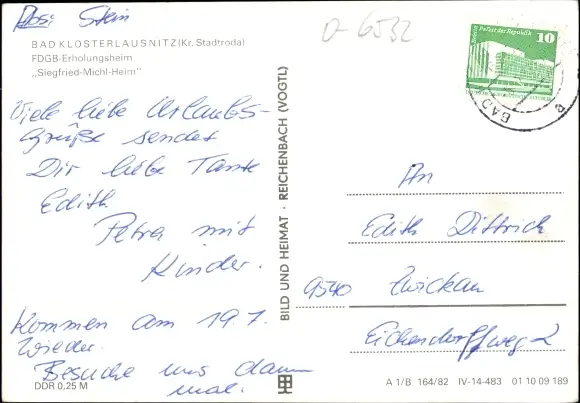 Abs: Stein
D-6532
BAD KLOSTERLAUSNITZ (Kr. Stadtroda)
FDGB-Erholungsheim
„Siegfried-Michl-Heim"
Viele liebe Urlaubs-
grüße sendet
Dir liebe Tante
Edith
Petra mit
Kinder.
Kommen am 19.7.
wieder.
Besuche uns dann
mal.
DDR 0,25 M
BILD UND HEIMAT · REICHENBACH (VOGTL)
Palast der Republik
10
BAD
An
Edith Dittrich
9540 Zwickau
Eichendorffweg 2
A 1/B 164/82 IV-14-483 01 10 09 189